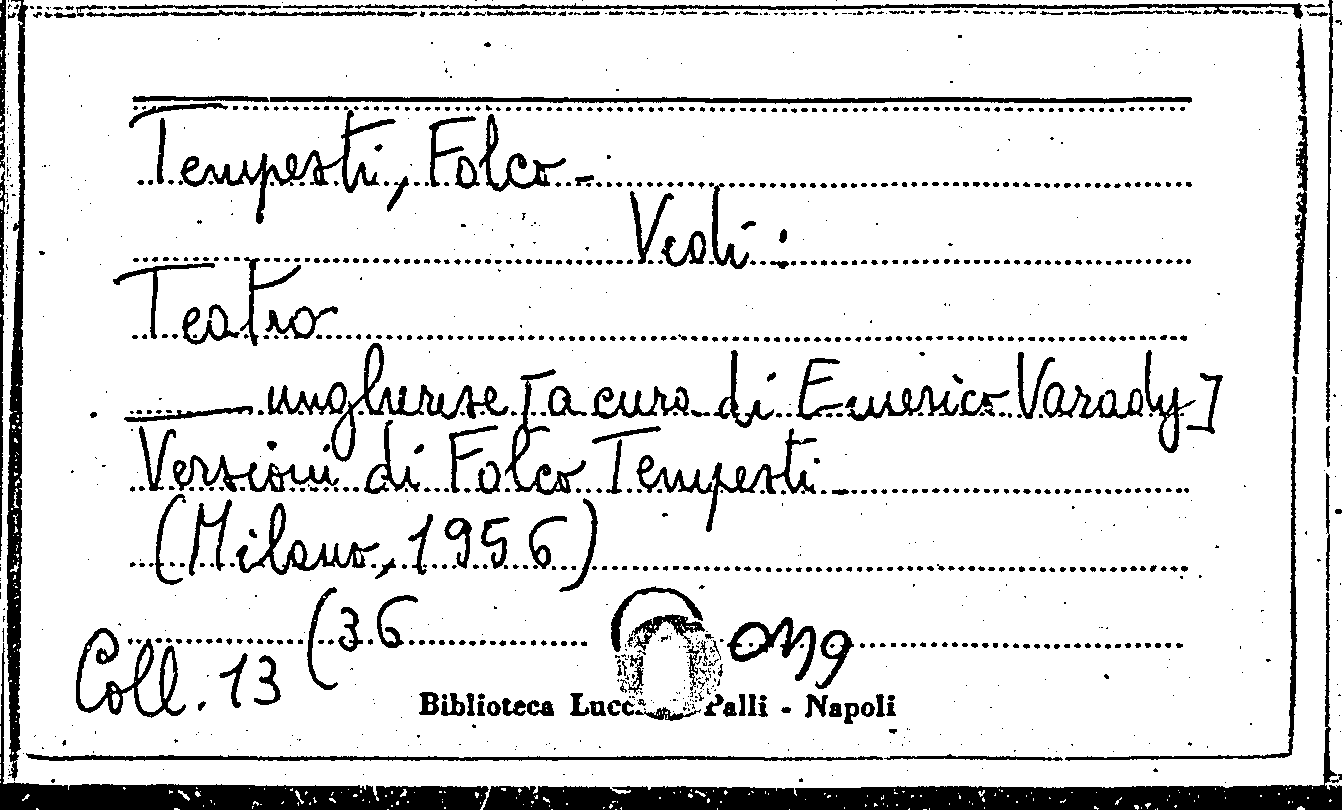 Tempesti, Folco -
Vedi :
Teatro
____ ungherese [a cura di Emerico Varady]
Versioni di Folco Tempesti
(Milano, 1956)
Coll. 13 (36
Biblioteca Lucc Palli - Napoli